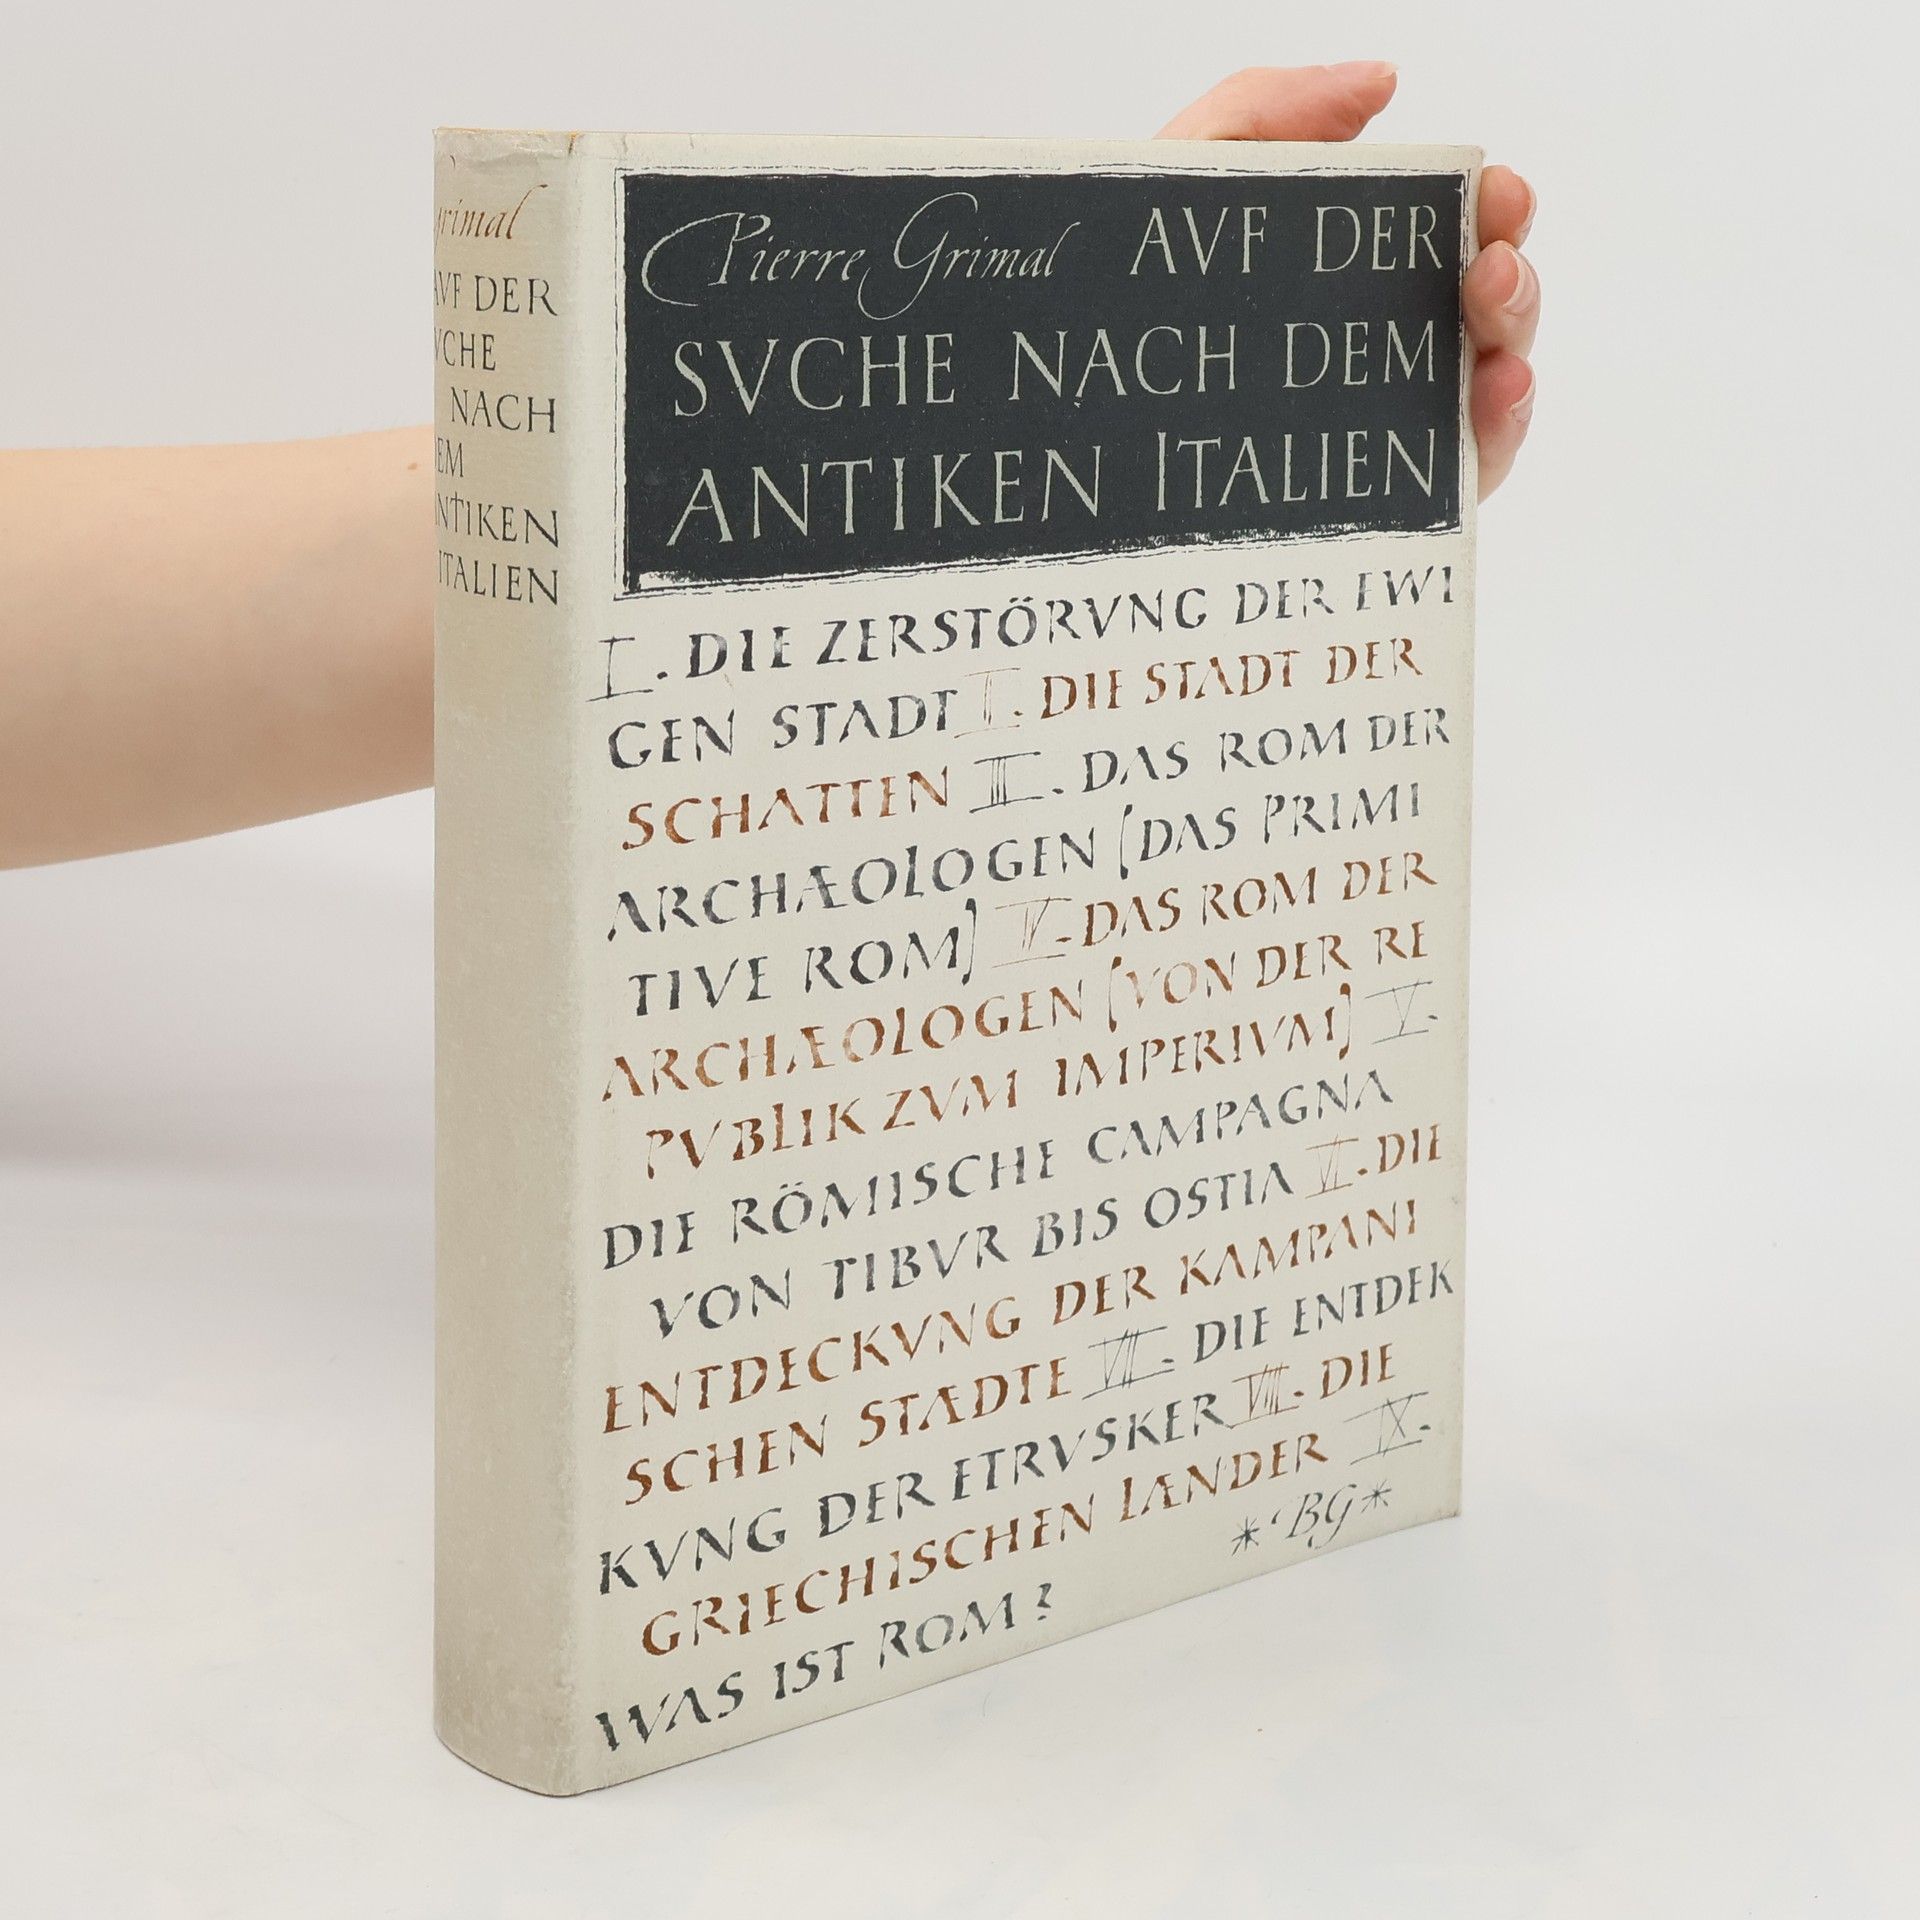 grimal
AVF DER
VCHE
NACH
EM
ANTIKEN
ITALIEN
Pierre Grimal AVF DER
SVCHE NACH DEM
ANTIKEN ITALIEN
I. DIE ZERSTÖRVNG DER EWI
GEN STADT II. DIE STADT DER
SCHATTEN III. DAS ROM DER
ARCHÆOLOGEN (DAS PRIMI
TIVE ROM) IV. DAS ROM DER
ARCHÆOLOGEN (VON DER RE
PVBLIK ZVM IMPERIVM) V.
DIE RÖMISCHE CAMPAGNA
VON TIBVR BIS OSTIA VI. DIE
ENTDECKVNG DER KAMPANI
SCHEN STÆDTE VII. DIE ENTDEK
KVNG DER ETRVSKER VIII. DIE
GRIECHISCHEN LÆNDER IX.
WAS IST ROM?
*BG*